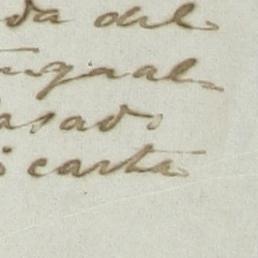 da del
ngaal
asado
carta